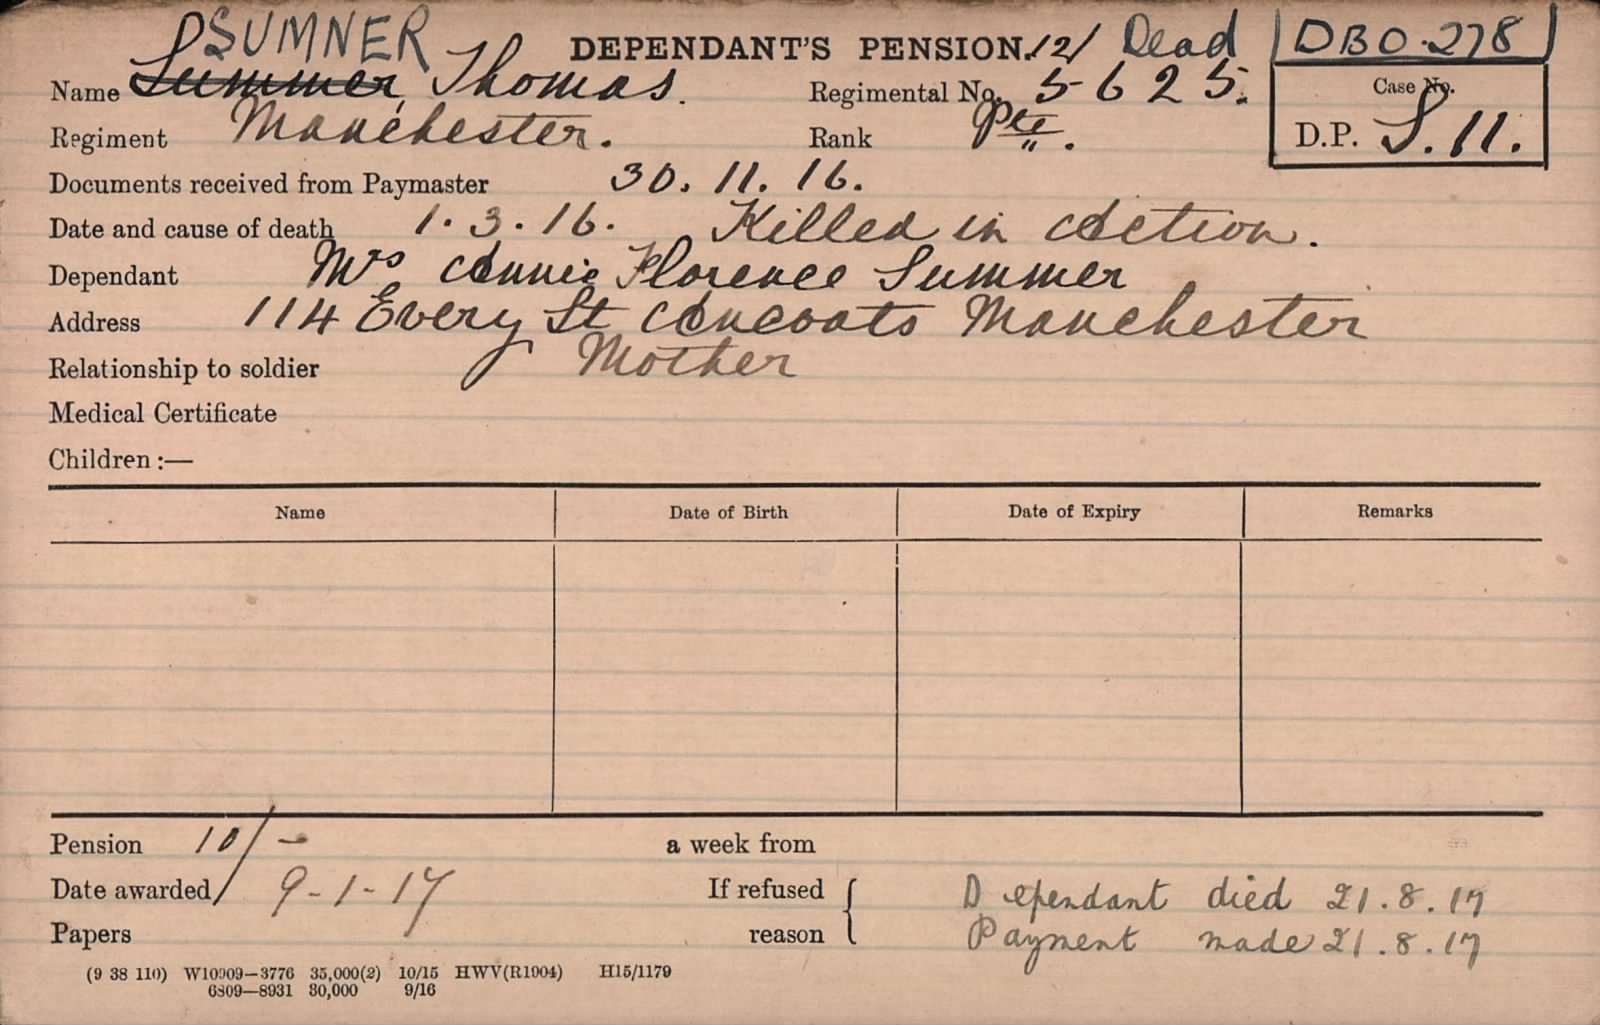 SUMNER DEPENDANT'S PENSION. 12/ Dead DBO. 278
Name Summer, Thomas. Regimental No. 5625. Case No.
Regiment Manchester. Rank Pte. D.P. S. 11.
Documents received from Paymaster 30. 11. 16.
Date and cause of death 1. 3. 16. Killed in Action.
Dependant Mrs Annie Florence Summer
Address 114 Every St Ancoats Manchester
Relationship to soldier Mother
Medical Certificate
Children :—
Name Date of Birth Date of Expiry Remarks
Pension 10/- a week from
Date awarded 9-1-17 If refused Dependant died 21.8.17
Papers reason Payment made 21.8.17
(9 38 110) W10909—3776 35,000(2) 10/15 HWV(R1904) H15/1179
6309—8931 30,000 9/16